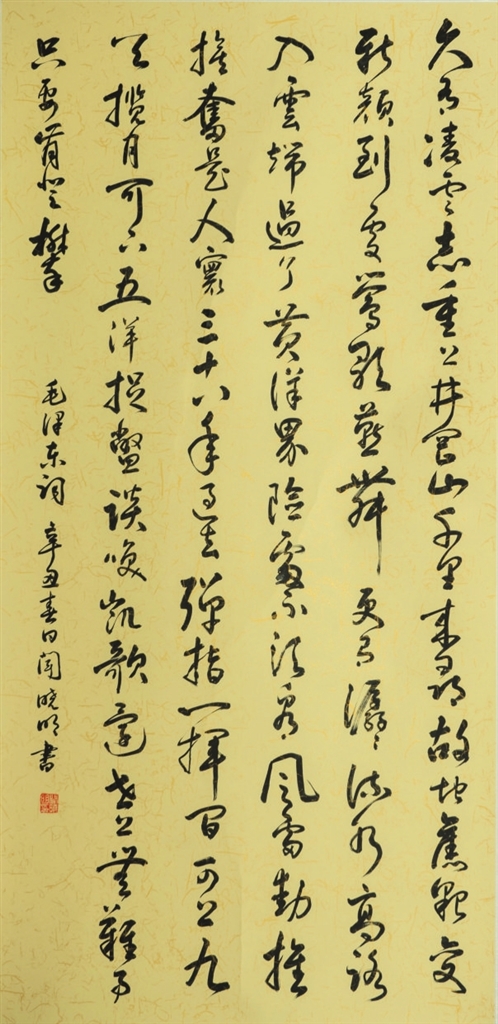 久有凌云志重上井冈山千里来寻故地舊貌变
新颜到处莺歌燕舞更有潺潺流水高路
入雲端過了黄洋界險處不须看風雷動旌
旗奮是人寰三十八年過去彈指一揮间可上九
天揽月可下五洋捉鳖谈笑凯歌還世上無難事
只要肯登攀
毛泽东词 辛丑春日闻晓明書